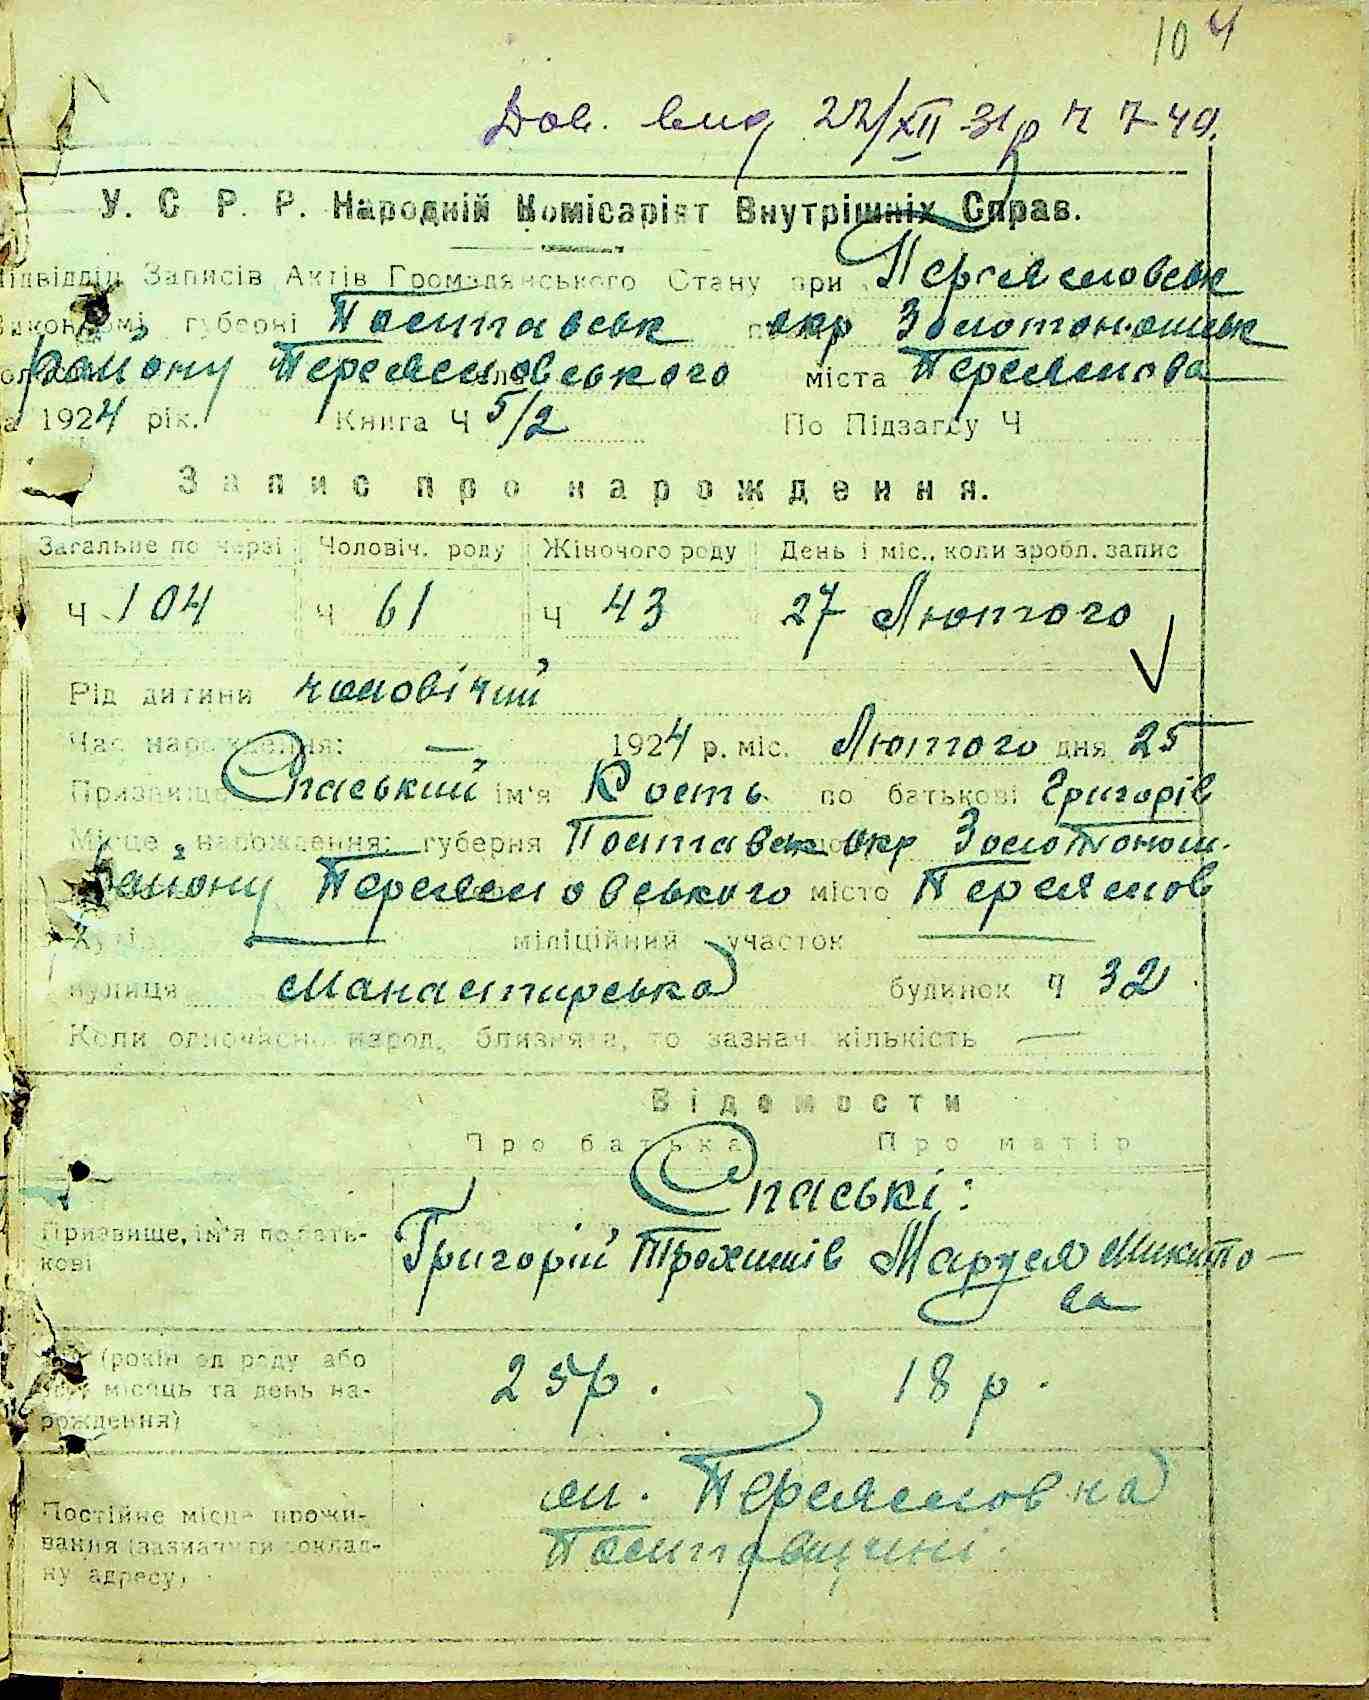 10 4
Дов. вид 22/XII 31 р Ч 740.
У. С Р. Р. Народній Комісаріят Внутрішніх Справ.
Підвідділ Записів Актів Громадянського Стану при Переясловськ
Виконкомі губерні Полтавськ окр Золотоношськ
Району Переясловського міста Переяслова
на 1924 рік. Книга Ч 5/2 По Підзагсу Ч
Запис про нарождення.
Загальне по черзі Чоловіч. роду Жіночого роду День і міс., коли зробл. запис
Ч 104 Ч 61 Ч 43 27 Лютого
Рід дитини чоловічий
Час нарождення: — 1924 р. міс. Лютого дня 25
Призвище Спаський ім'я Кость по батькові Григорів
Місце нарождення: губерня Полтавськ окр Золотонош.
Району Переясловського місто Переяслов
Хутір — міліційний участок —
вулиця Манастирська будинок Ч 32
Коли одночасно народ. близнята, то зазнач. кількість —
Відомости
Про батька Про матір
Спаські:
Призвище, ім'я по бать-
кові
Григорій Трохимів Маруся Микито-
ва
(років од роду або
місяць та день на-
рождення)
25 р. 18 р.
Постійне місце прожи-
вання (зазначити доклад-
ну адресу)
м. Переяслов на
Полтавщині.